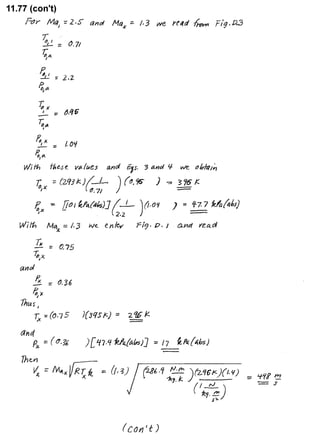 11.77 (con't)
For Ma₁ = 2.5 and Maₓ = 1.3 we read from Fig. D.3
T₀,₁ / T₀,ₐ = 0.71
P₀,₁ / P₀,ₐ = 2.2
T₀,ₓ / T₀,ₐ = 0.95
P₀,ₓ / P₀,ₐ = 1.04
With these values and Eqs. 3 and 4 we obtain
T₀,ₓ = (293 K)(1/0.71)(0.95) = 395 K
P₀,ₓ = [101 kPa(abs)](1/2.2)(1.04) = 47.7 kPa(abs)
With Maₓ = 1.3 we enter Fig. D.1 and read
Tₓ / T₀,ₓ = 0.75
and
Pₓ / P₀,ₓ = 0.36
Thus,
Tₓ = (0.75)(395 K) = 296 K
and
Pₓ = (0.36)[47.7 kPa(abs)] = 17 kPa(abs)
Then
Vₓ = Maₓ √(RTₓk) = (1.3) √((286.9 N.m / kg.K)(296 K)(1.4) / (1 N / kg. m/s²)) = 448 m/s
(con't)